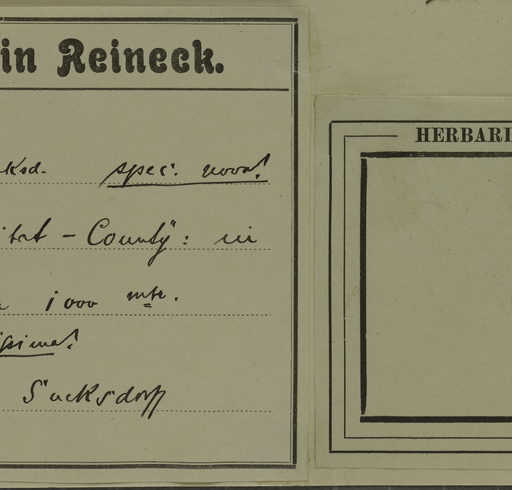 in Reineck.
ksd. spec. nova!
itat - County: in
1000 mtr.
issima!
Suksdorff
HERBARI